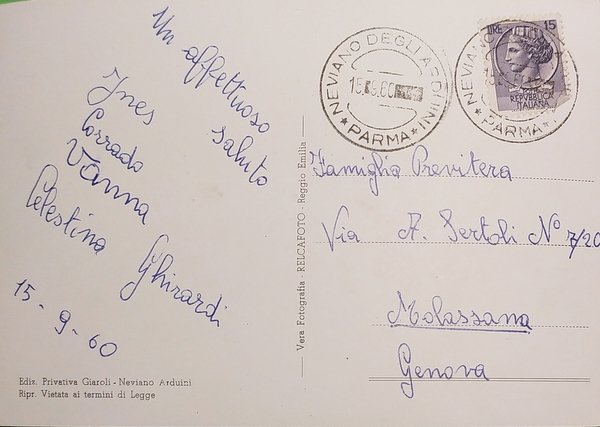 Un affettuoso
saluto
Ines
Corrado
Vanna
Celestina Ghirardi
15-9-60
Ediz. Privativa Giaroli - Neviano Arduini
Ripr. Vietata ai termini di Legge
Vera Fotografia - RELCAFOTO - Reggio Emilia
NEVIANO DEGLI ARDUINI
★ PARMA ★
LIRE 15
REPUBBLICA
ITALIANA
NEVIANO
★ PARMA
Famiglia Previtera
Via A. Sertoli N° 7/20
Molassana
Genova